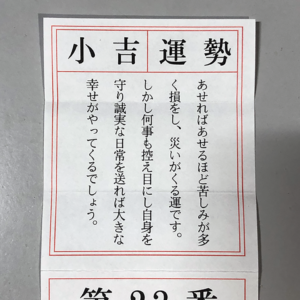 小吉運勢
あせればあせるほど苦しみが多
く損をし、災いがくる運です。
しかし何事も控え目にし自身を
守り誠実な日常を送れば大きな
幸せがやってくるでしょう。